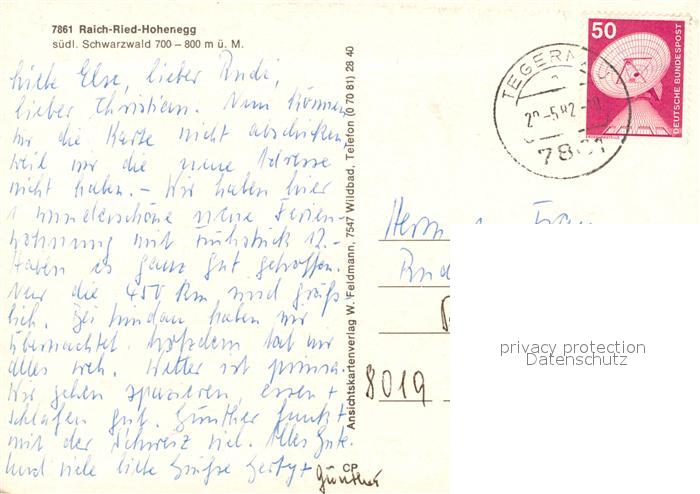 7861 Raich-Ried-Hohenegg
südl. Schwarzwald 700 – 800 m ü. M.
Liebe Else, lieber Rudi,
lieber Christian. Nun können
wir die Karte nicht abschicken,
weil wir die neue Adresse
nicht haben. – Wir haben hier
1 wunderschöne neue Ferien-
wohnung mit Frühstück 12.–
Haben es ganz gut getroffen.
Nur die 450 km sind gräß-
lich. Bei Lindau haben wir
übernachtet. Trotzdem tat mir
alles weh. Wetter ist prima.
Wir gehen spazieren, essen +
schlafen gut. Günther funkt
mit der Schweiz viel. Alles Gute
und viele liebe Grüße Gerty +
Günther
CP
Ansichtskartenverlag W. Feldmann, 7547 Wildbad, Telefon (0 70 81) 28 40
50
DEUTSCHE BUNDESPOST
TEGERNAU
-5.82
7861
Herrn u. Frau
Rud
8019
privacy protection
Datenschutz